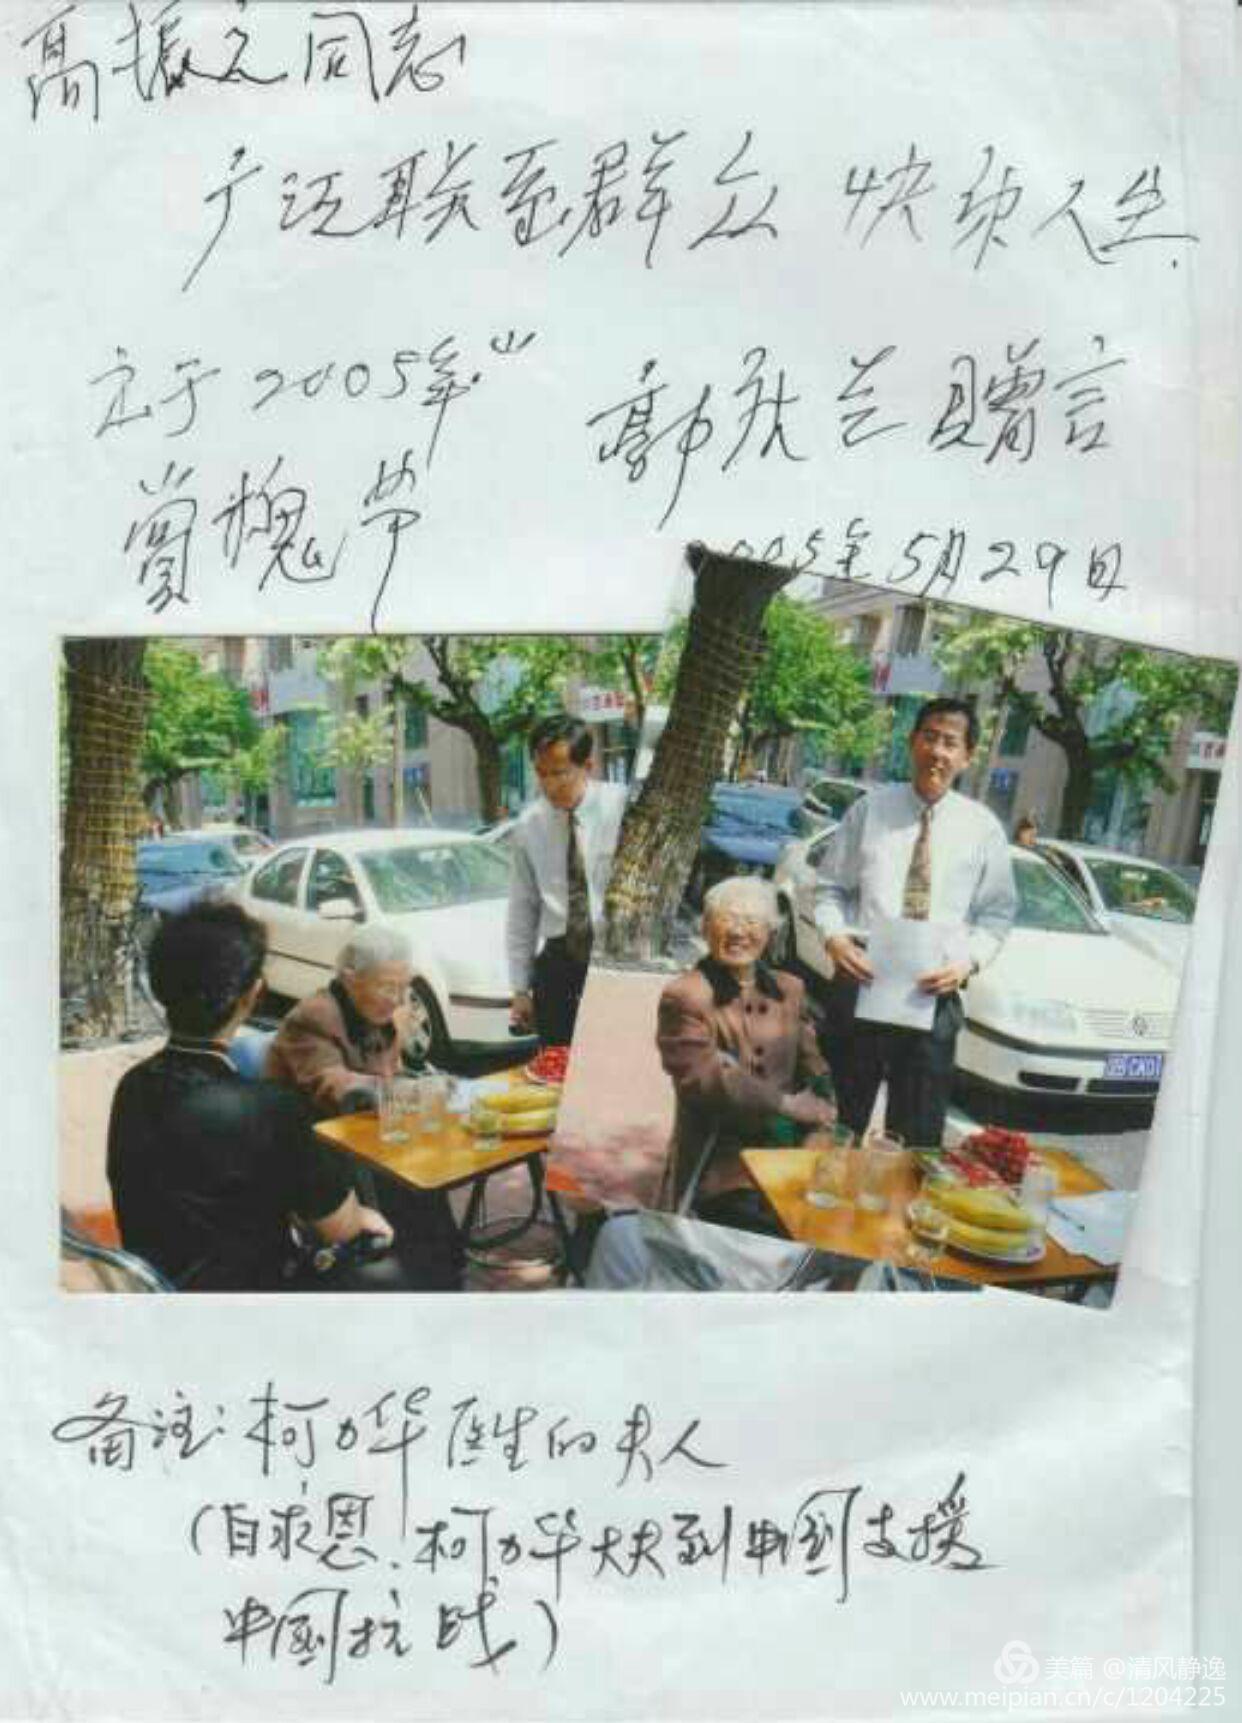 高振之同志
广泛联系群众 快乐人生
立于2005年"
赏槐节
郭庆兰赠言
2005年5月29日
备注:柯力华医生的夫人
(白求恩、柯力华大夫到中国支援
中国抗战)
美篇 @清风静逸
www.meipian.cn/c/1204225